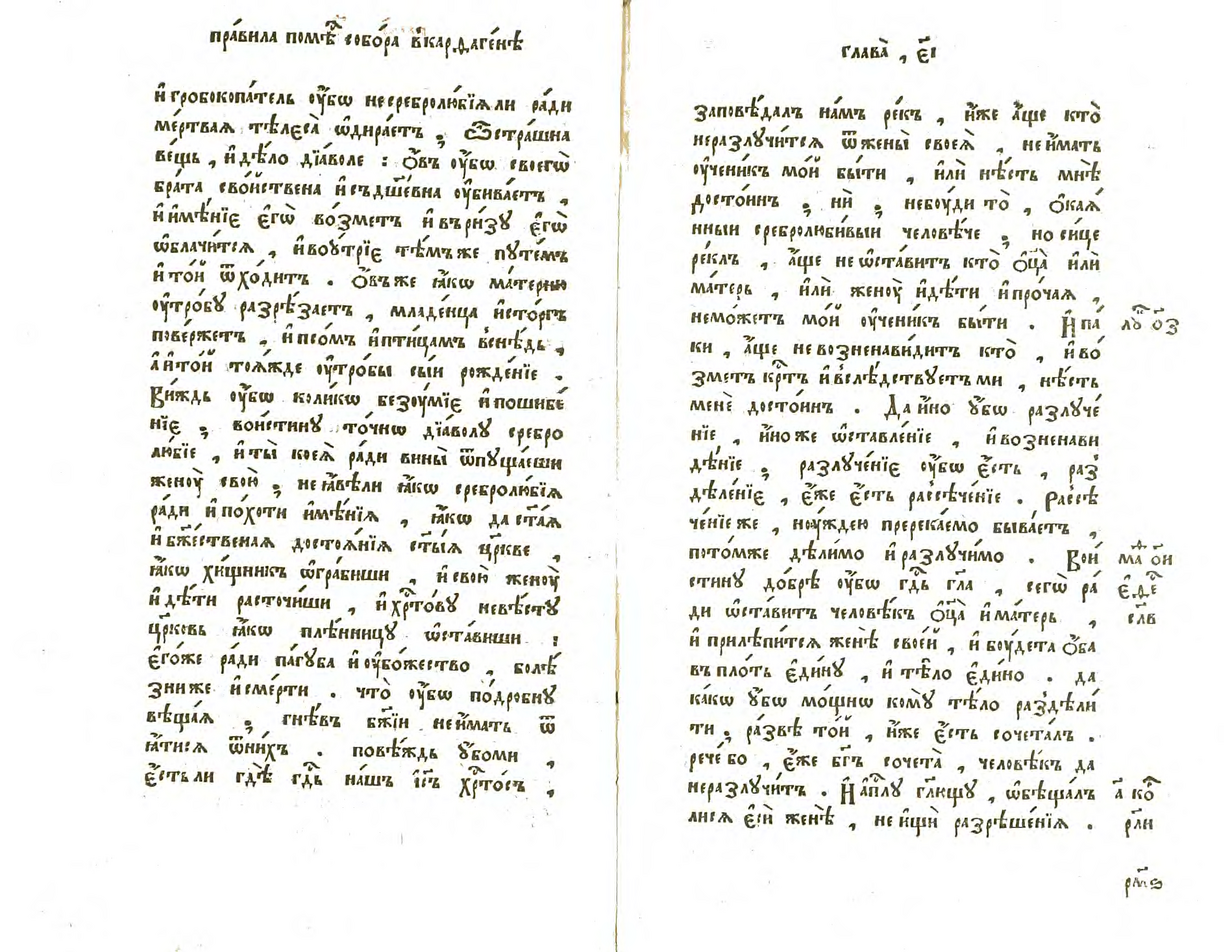 пра́вила помѣ́ст собо́ра в̾карѳаге́нѣ
и҆ гробокопа́тель ᲂу҆́бѡ несребролю́бїѧли ра́ди
ме́ртваѧ тѣлеса̀ ѡ҆дира́етъ ; Ѽстра́шна
ве́щь , и҆ дѣ́ло дїа́воле : ѻ҆́въ ᲂу҆́бѡ своегѡ̀
бра́та сво́йствена и҆ съдш҃е́вна ᲂу҆бива́етъ ,
и҆ и҆мѣ́нїе є҆гѡ̀ во́зметъ и҆ въри́зꙋ є҆гѡ̀
ѡ҆блачи́тсѧ , и҆ воꙋ́трїе тѣ́мъже пꙋте́мъ
и҆ то́й ѿхо́дитъ . Ѻ҆́въже ꙗ҆́кѡ ма́терню
ᲂу҆тро́бꙋ разрѣ́заетъ , младе́нца и҆сто́ргъ
пове́ржетъ , и҆ псо́мъ и҆ пти́цамъ в̾снѣ́дь ,
а҆ и҆ то́й тоѧ́жде ᲂу҆тро́бы сы́и рожде́нїе .
Ви́ждь ᲂу҆́бѡ коли́кѡ безᲂу́мїе и҆ пошибе́
нїе ; вои́стинꙋ то́чнѡ дїа́волꙋ сребро
лю́бїе , и҆ ты̀ коеѧ̀ ра́ди вины̀ ѿпꙋща́еши
женᲂу̀ свою̀ ; не ꙗ҆́вѣли ꙗ҆́кѡ сребролю́бїѧ
ра́ди и҆ по́хоти и҆мѣ́нїѧ , ꙗ҆́кѡ да ст҃а́ѧ
и҆ бж҃е́ственаѧ достоѧ́нїѧ ст҃ы́ѧ цр҃кве ,
ꙗ҆́кѡ хи́щникъ ѡ҆гра́биши , и҆ свою̀ женᲂу̀
и҆ дѣ́ти расточи́ши , и҆ хрⷭ҇то́вꙋ невѣ́стꙋ
цр҃ковь ꙗ҆́кѡ плѣ́нницꙋ ѡ҆ста́виши :
є҆гѡ́же ра́ди па́гꙋба и҆ ᲂу҆бо́жество , болѣ́
знь же и҆ сме́рти . что̀ ᲂу҆́бѡ по́дробнꙋ
вѣща́ѧ ; гнѣ́въ бж҃їи не и҆́мать ѿ
ꙗ҆́тисѧ ѿни́хъ . повѣ́ждь ᲂу҆́боми ,
є҆́стьли гдѣ̀ гдⷭ҇ь на́шъ і҆с҃ъ хрⷭ҇то́съ ,
глава̀ , є҃і
заповѣ́далъ на́мъ ре́къ , и҆́же а҆́ще кто̀
неразлꙋчи́тсѧ ѿ жены̀ своеѧ̀ , не и҆́мать
ᲂу҆чени́къ мо́й бы́ти , и҆лѝ нѣ́сть мнѣ̀
досто́инъ ; нѝ ; небᲂу́ди то̀ , ѻ҆каѧ́
нныи сребролюби́выи человѣ́че ; но си́це
ре́клъ , а҆́ще не ѡ҆ста́витъ кто̀ ѻ҆ц҃а̀ и҆лѝ
ма́терь , и҆лѝ женᲂу̀ и҆ дѣ́ти и҆ про́чаѧ ,
немо́жетъ мо́й ᲂу҆чени́къ бы́ти . И҆ па́
ки , а҆́ще не возненави́дитъ кто̀ , и҆ во́
зметъ крⷭ҇тъ и҆ в̾слѣ́дствꙋетъ ми , нѣ́сть
менѐ досто́инъ . Да и҆́но ᲂу҆́бѡ разлꙋче́
нїе , и҆́но же ѡ҆ставле́нїе , и҆ возненави
дѣ́нїе ; разлꙋче́нїе ᲂу҆́бѡ є҆́сть , раз̾
дѣле́нїе , є҆́же є҆́сть разсѣче́нїе . Разсѣ
че́нїе же , нᲂу́ждею пререка́емо быва́етъ ,
пото́мже дѣли́мо и҆ разлꙋчи́мо . Вои́
стинꙋ до́брѣ ᲂу҆́бѡ гдⷭ҇ь гл҃а , сегѡ̀ ра́
ди ѡ҆ста́витъ человѣ́къ ѻ҆ц҃а̀ и҆ ма́терь ,
и҆ прилѣпи́тсѧ женѣ̀ свое́й , и҆ бᲂу́дета ѻ҆́ба
въ пло́ть є҆ди́нꙋ , и҆ тѣ́ло є҆ди́но . да
ка́кѡ ᲂу҆́бѡ мо́щнѡ комꙋ̀ тѣ́ло раздѣли́
ти ; ра́звѣ то́й , и҆́же є҆́сть сочета́лъ .
рече́ бо , є҆́же бг҃ъ сочета̀ , человѣ́къ да
неразлꙋчи́тъ . И҆ а҆пⷭ҇лꙋ гл҃ющꙋ , ѡ҆бѣща́лъ
лисѧ є҆сѝ женѣ̀ , не и҆щѝ разрѣше́нїѧ .
лꙋⷦ҇ ѻ҃з
маⷴ҇ ѻ҃и
є҆фⷭ҇е
сл҃в
а҃ коⷬ҇
рл҃и
рм҃ѕ